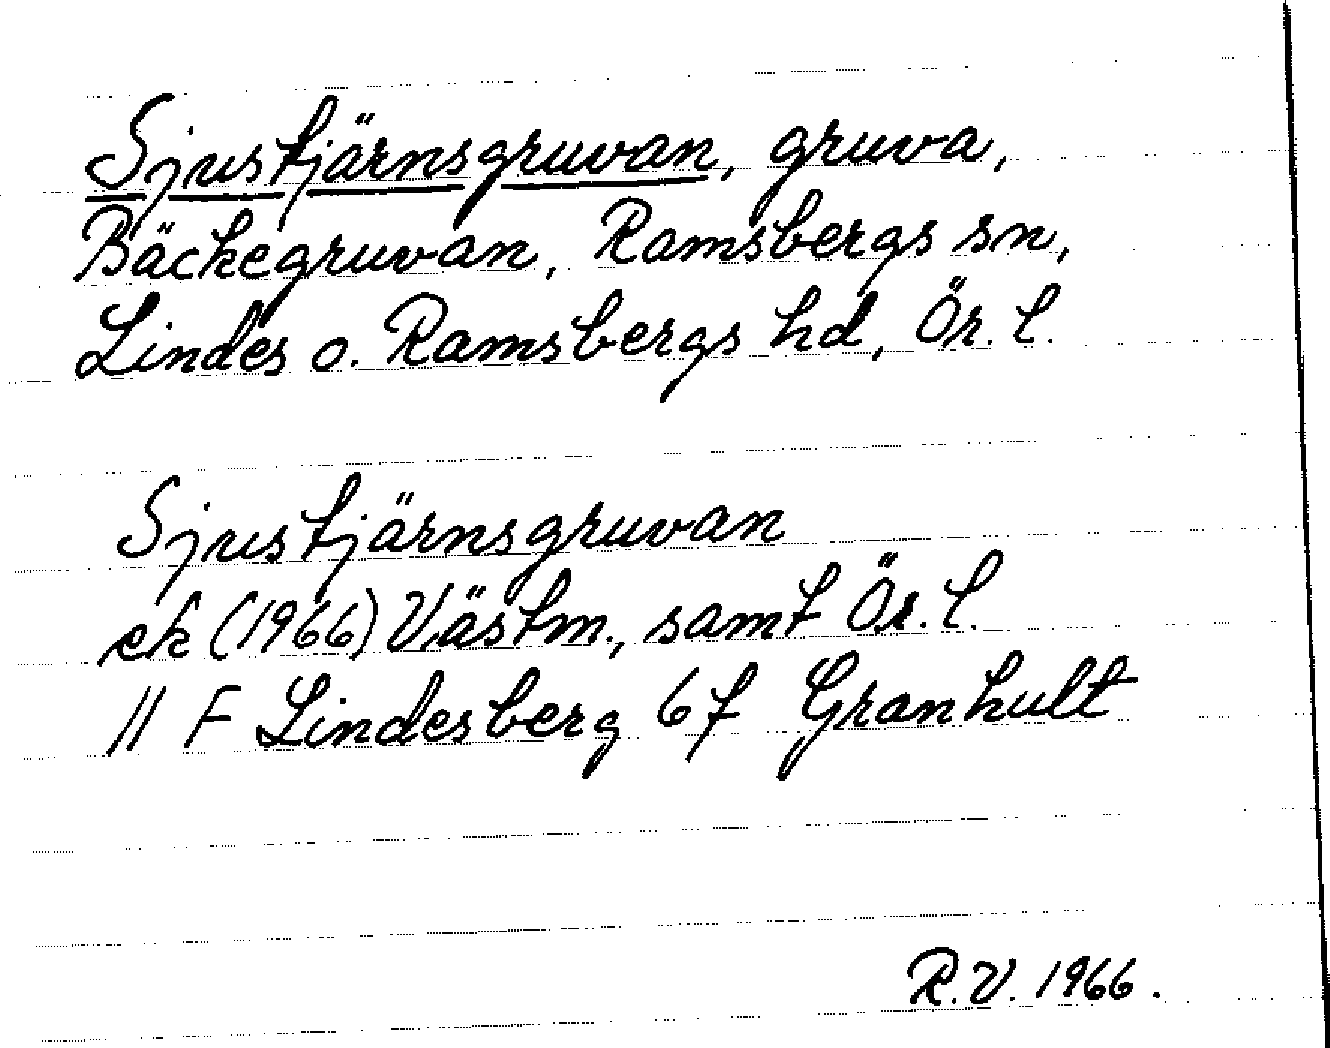 Sjustjärnsgruvan, gruva,
Bäckegruvan, Ramsbergs sn,
Lindes o. Ramsbergs hd, Ör. l.
Sjustjärnsgruvan
ek (1966) Västm., samt Ör. l.
11 F Lindesberg 6f Granhult
R.V. 1966.